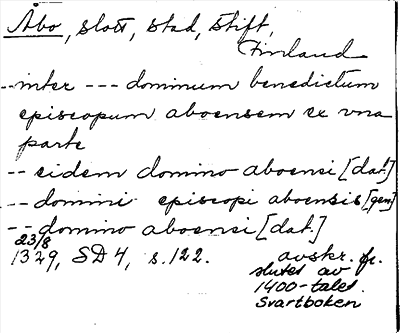 Åbo, slott, stad, stift,
Finland
-- inter --- dominum benedictum
episcopum aboensem ex vna
parte
-- eidem domino aboensi [dat.]
-- domini episcopi aboensis [gen]
-- domino aboensi [dat.]
23/8
1329, SD 4, s. 122.
avskr. fr.
slutet av
1400-talet.
Svartboken